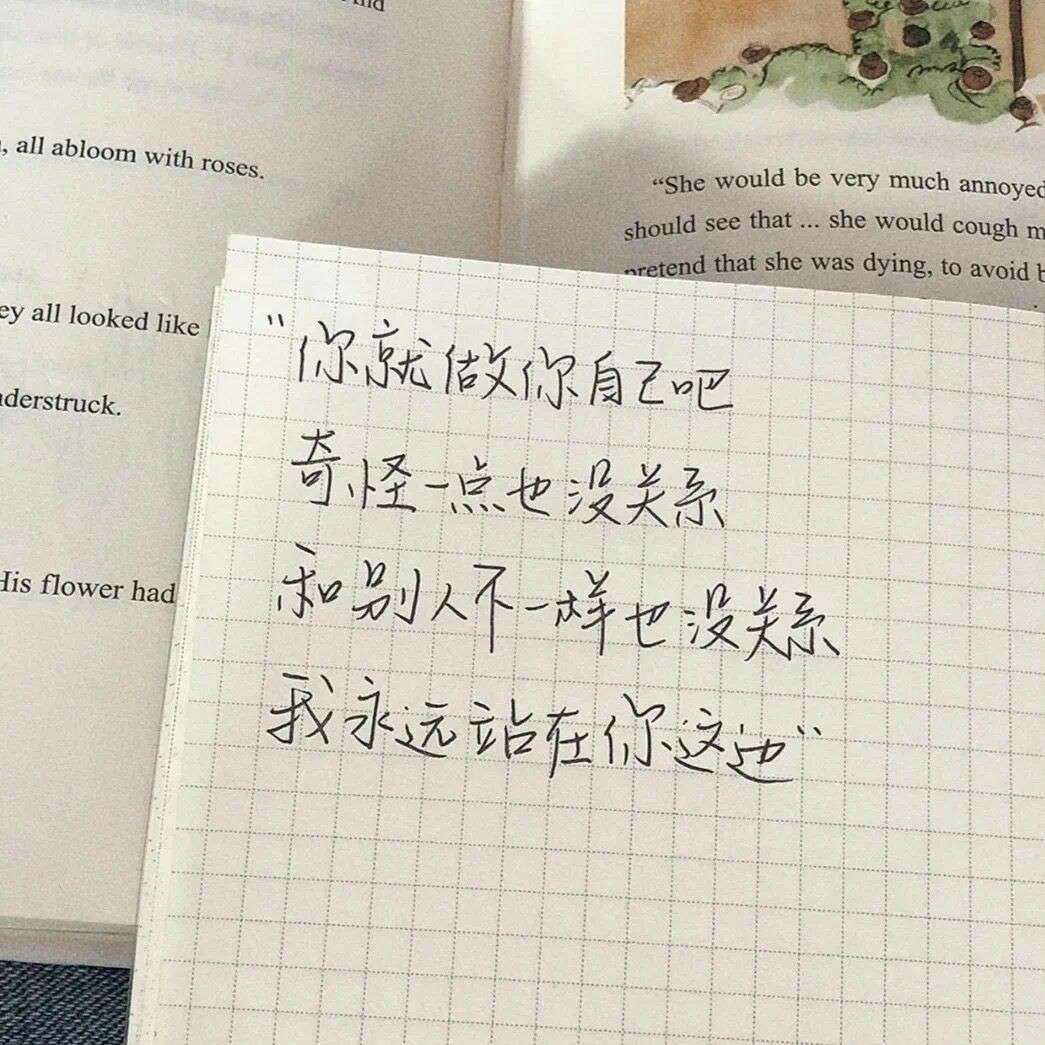 , all abloom with roses.
ey all looked like
derstruck.
His flower had
“She would be very much annoyed
should see that ... she would cough m
pretend that she was dying, to avoid b
“你就做你自己吧
奇怪一点也没关系
和别人不一样也没关系
我永远站在你这边”